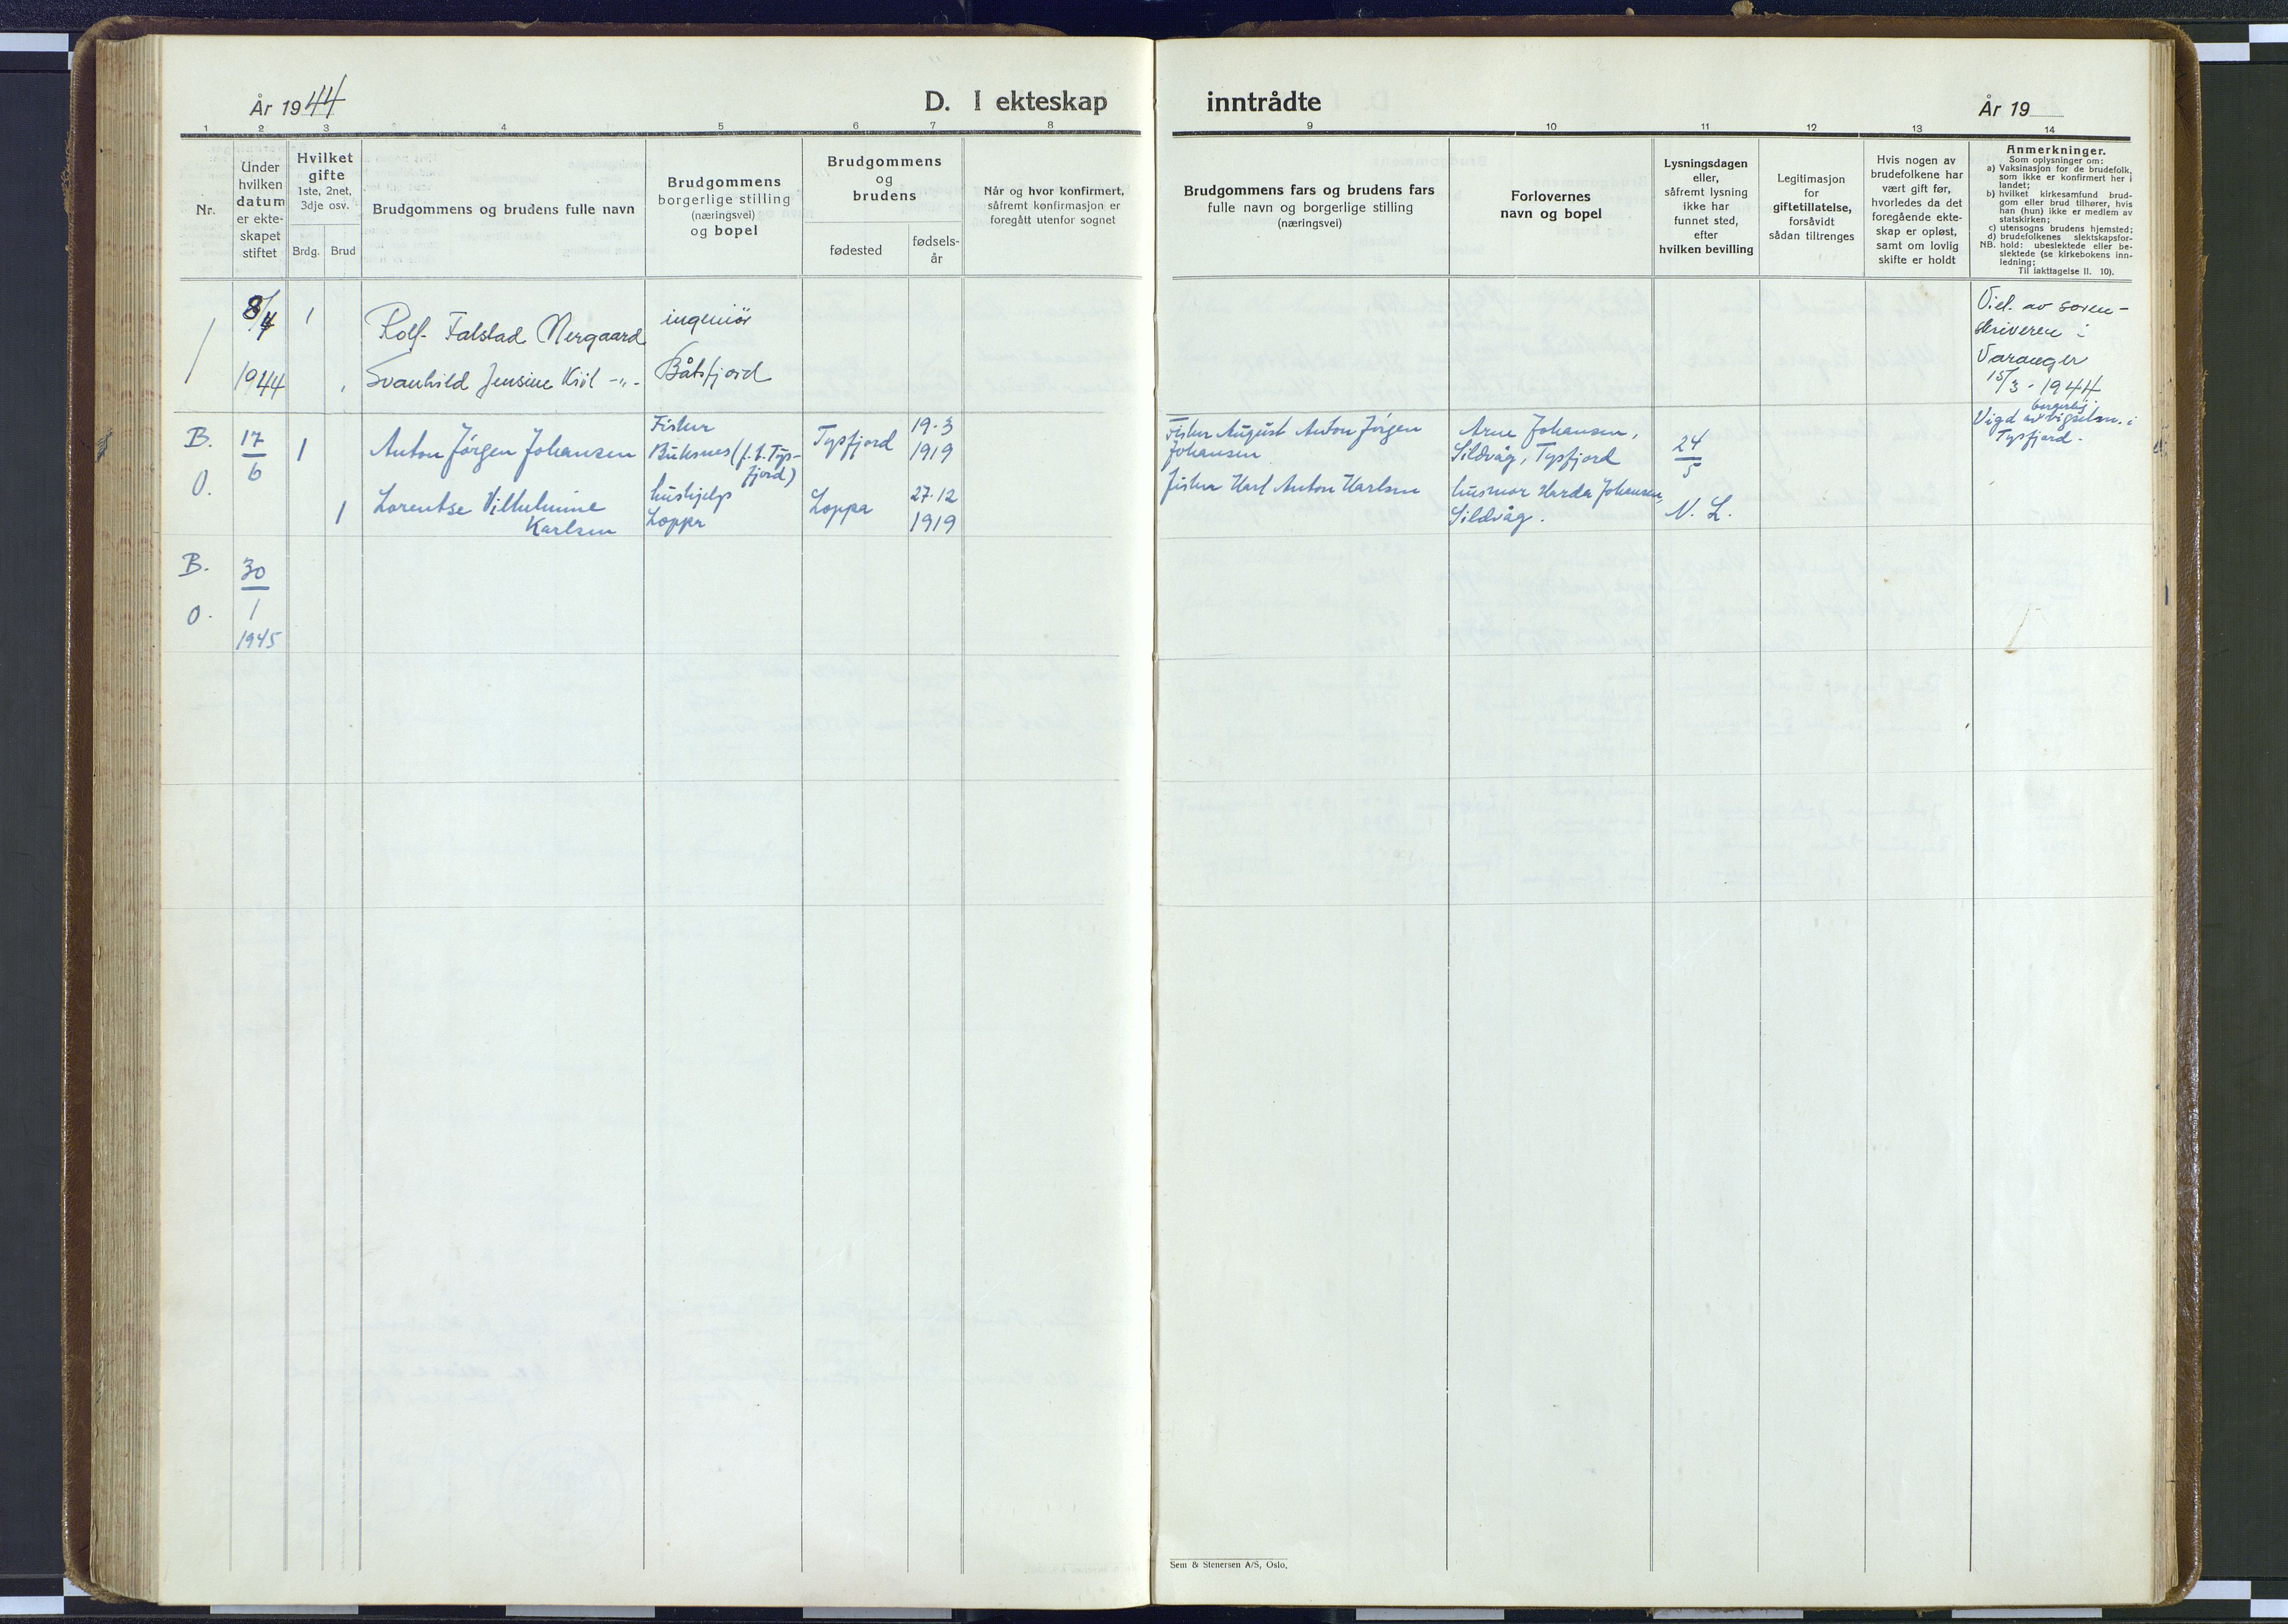 År 1944
D. I ekteskap inntrådte
År 19
1 2 3 4 5 6 7 8 9 10 11 12 13 14
Nr.
Under
hvilken
datum
er ekte-
skapet
stiftet
Hvilket
gifte
1ste, 2net,
3dje osv.
Brdg. Brud
Brudgommens og brudens fulle navn
Brudgommens
borgerlige stilling
(næringsvei)
og bopel
Brudgommens
og
brudens
fødested
fødsels-
år
Når og hvor konfirmert,
såfremt konfirmasjon er
foregått utenfor sognet
Brudgommens fars og brudens fars
fulle navn og borgerlige stilling
(næringsvei)
Forlovernes
navn og bopel
Lysningsdagen
eller,
såfremt lysning
ikke har
funnet sted,
efter
hvilken bevilling
Legitimasjon
for
giftetillatelse,
forsåvidt
sådan tiltrenges
Hvis nogen av
brudefolkene har
vært gift før,
hvorledes da det
foregående ekte-
skap er opløst,
samt om lovlig
skifte er holdt
Anmerkninger.
Som oplysninger om:
a) Vaksinasjon for de brudefolk,
som ikke er konfirmert her i
landet;
b) hvilket kirkesamfund brud-
gom eller brud tilhører, hvis
han (hun) ikke er medlem av
statskirken;
c) utensogns brudens hjemsted;
d) brudefolkenes slektskapsfor-
NB. hold: ubeslektede eller be-
slektede (se kirkebokens inn-
ledning;
Til iakttagelse II. 10).
1
8/4
1944
1
Rolf Falstad Nergaard
Svanhild Jensine Kiil -"-
ingeniør
Båtsfjord
Viel. av soren-
skriveren i
Varanger
15/3 - 1944
B.
O.
17
6
1
Anton Jørgen Johansen
Fisker
Buksnes (f. t. Tys-
fjord)
Tysfjord
19.3
1919
Fisker August Anton Jörgen
Johansen
Arne Johansen,
Sildvåg, Tysfjord
24
5
borgerlig
Vigd av vigselsm. i
Tysfjord.
1
Lorentse Vilhelmine
Karlsen
hushjelp
Loppa
Loppa
27.12
1919
fisker Karl Anton Karlsen
husmor Harda Johansen,
Sildvåg.
N. L.
B.
O.
30
1
1945
Sem & Stenersen A/S, Oslo.